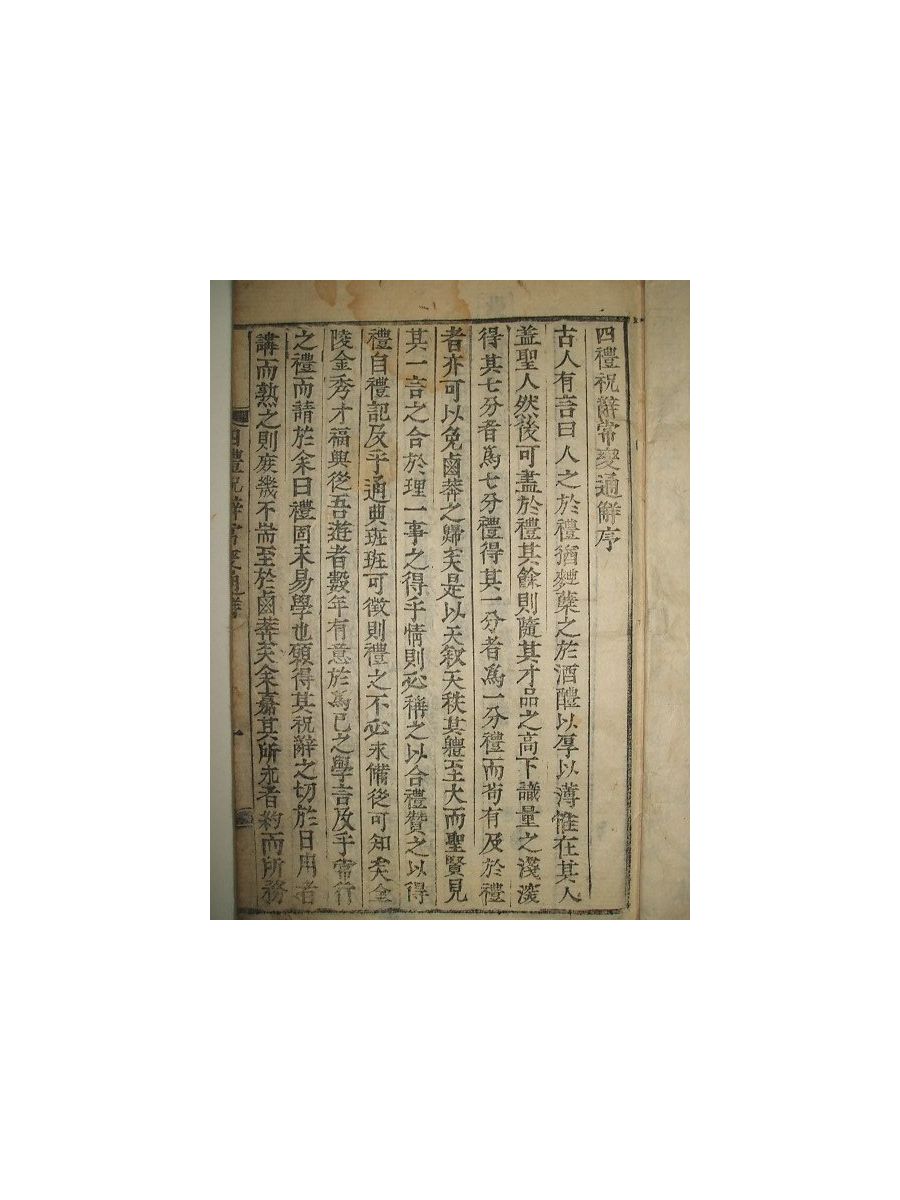 四禮祝辭常變通解序
古人有言曰人之於禮猶麯糱之於酒醴以厚以薄惟在其人
盖聖人然後可盡於禮其餘則隨其才品之高下識量之淺深
得其七分者爲七分禮得其一分者爲一分禮而苟有及於禮
者亦可以免鹵莽之歸矣是以天叙天秩其軆至大而聖賢見
其一言之合於理一事之得乎情則必稱之以合禮贊之以得
禮自禮記及乎通典班班可徵則禮之不必求備從可知矣金
陵金秀才福興從吾遊者數年有意於爲已之學言及乎常行
之禮而請於余曰禮固未易學也願得其祝辭之切於日用者
講而熟之則庶幾不啻至於鹵莽矣余嘉其所求者約而所務
四禮祝辭常變通解
一